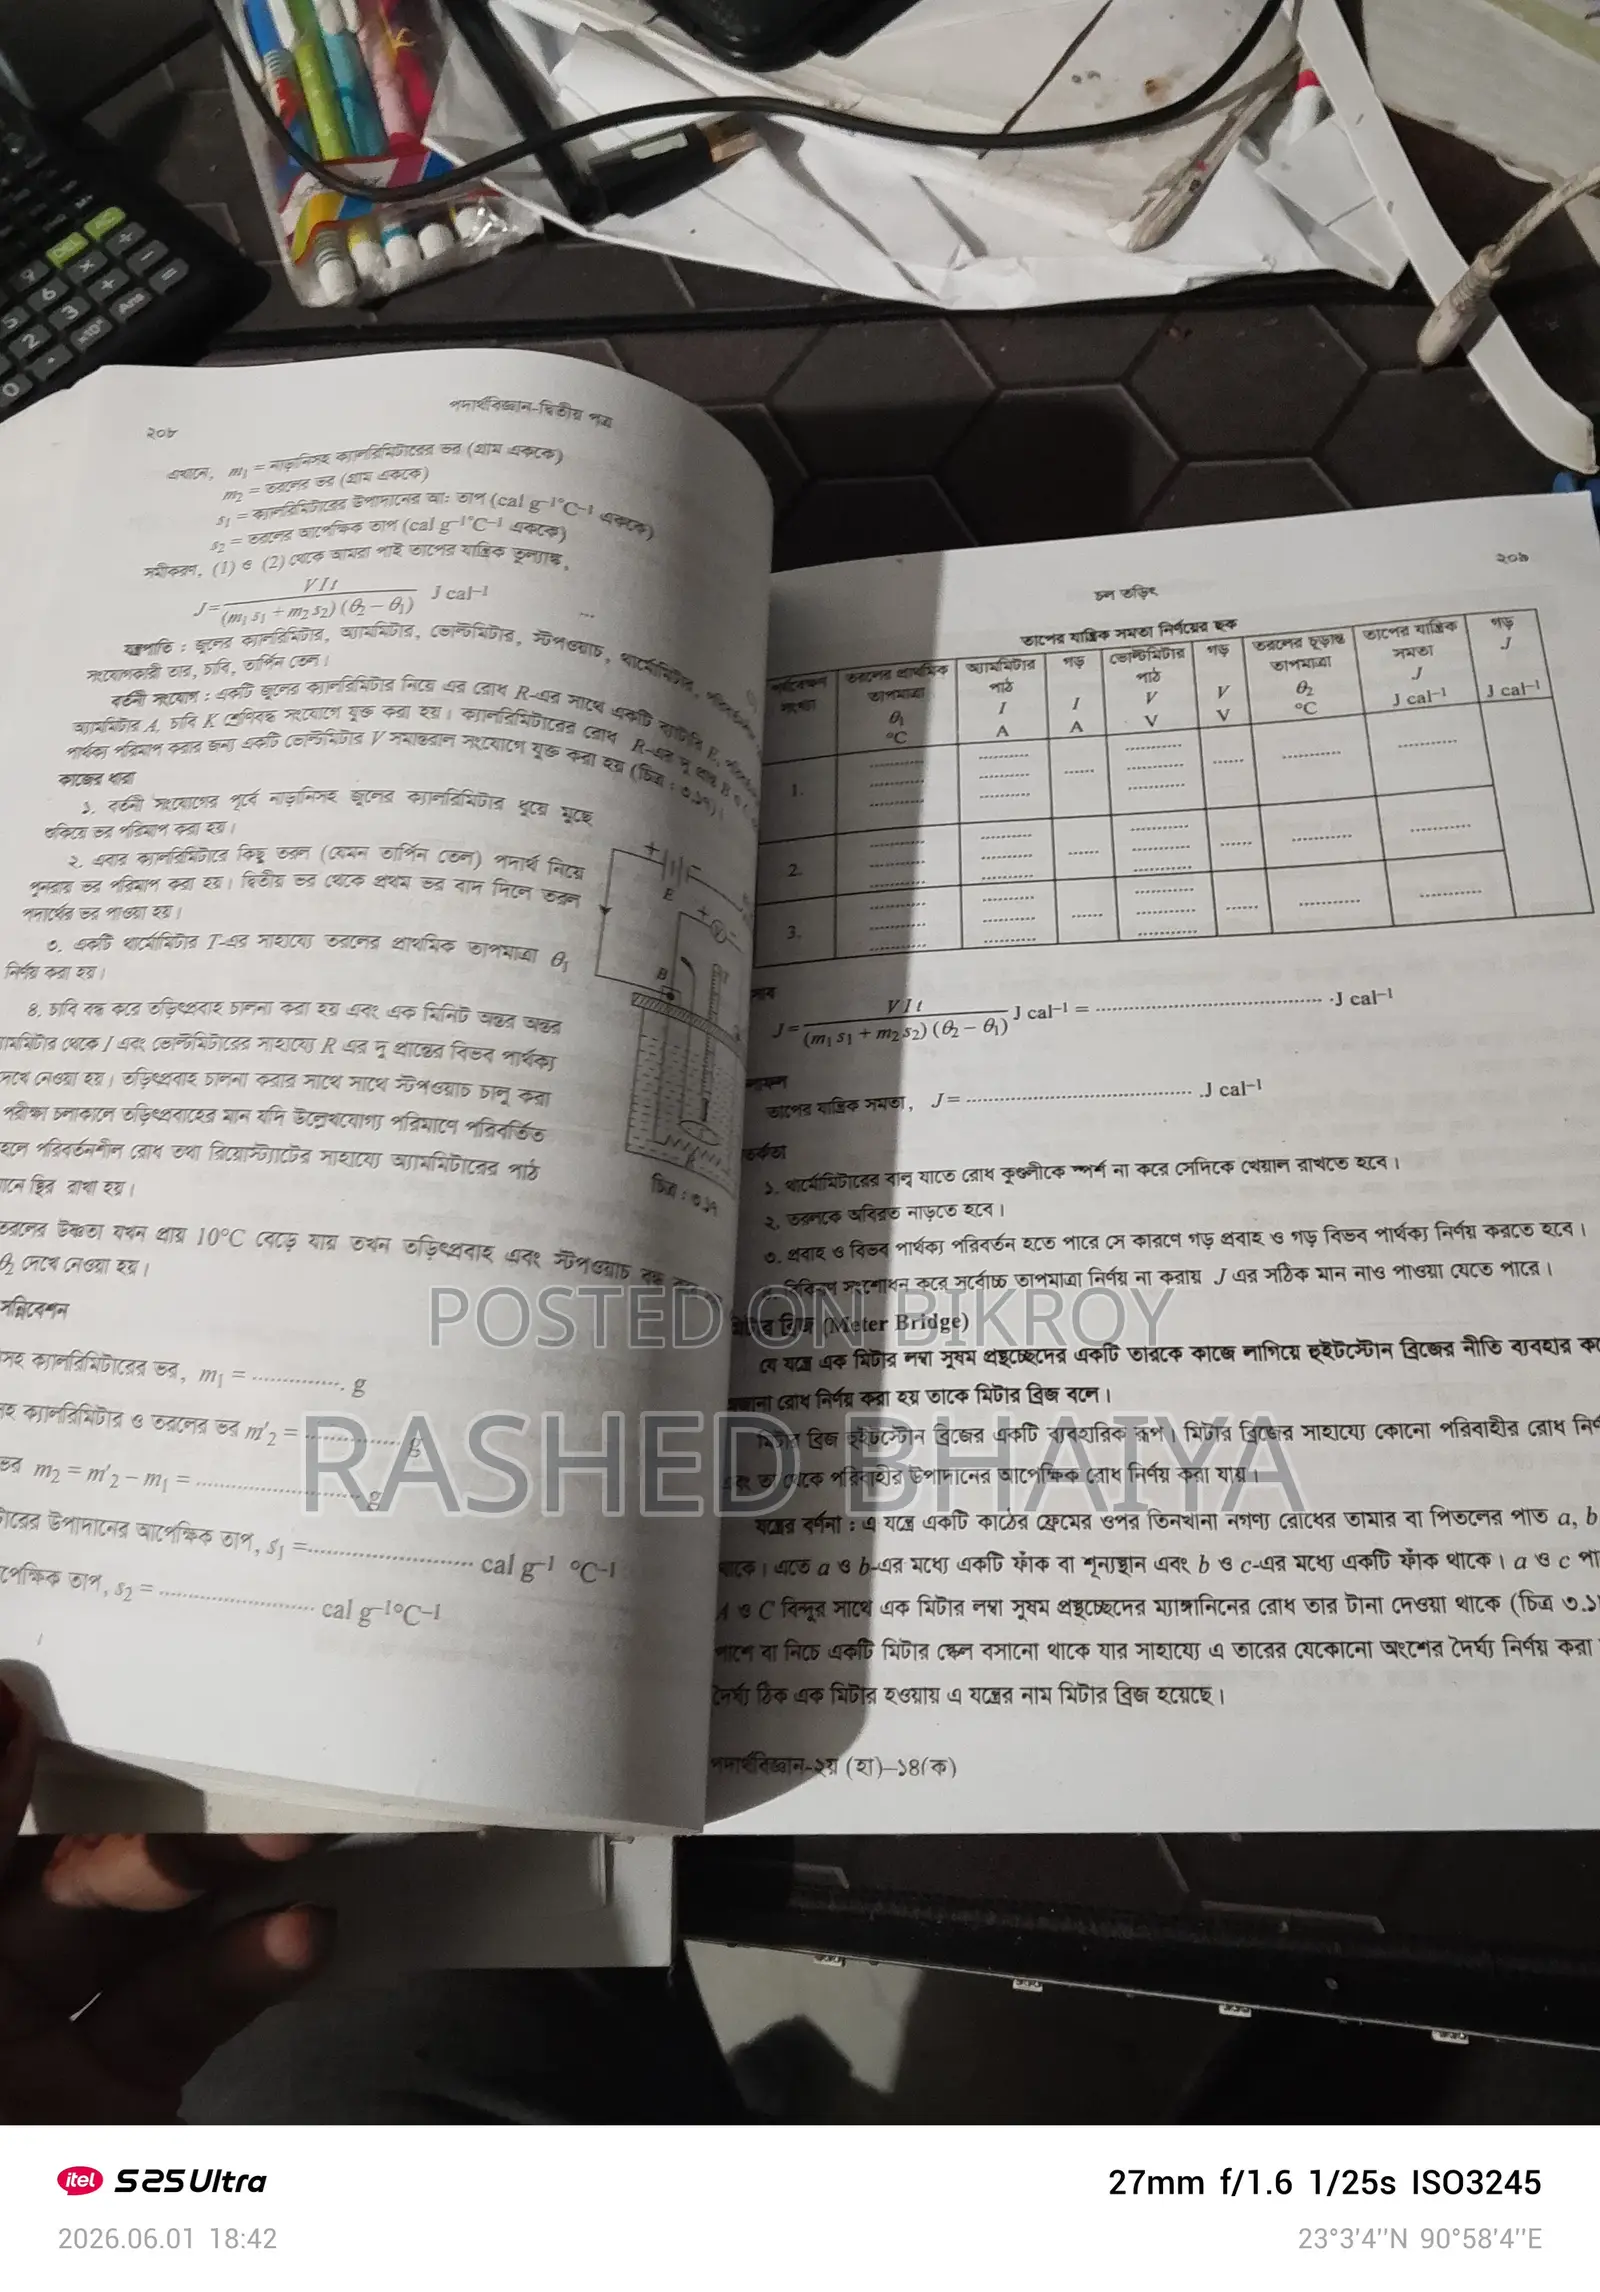 ২০৮
পদার্থবিজ্ঞান-দ্বিতীয় পত্র
এখানে, m1 = নাড়ানিসহ ক্যালরিমিটারের ভর (গ্রাম এককে)
m2 = তরলের ভর (গ্রাম এককে)
s1 = ক্যালরিমিটারের উপাদানের আঃ তাপ (cal g–1°C–1 এককে)
s2 = তরলের আপেক্ষিক তাপ (cal g–1°C–1 এককে)
সমীকরণ, (1) ও (2) থেকে আমরা পাই তাপের যান্ত্রিক তুল্যাঙ্ক,
J = V I t / (m1 s1 + m2 s2) (θ2 – θ1) J cal–1
যন্ত্রপাতি : জুলের ক্যালরিমিটার, অ্যামমিটার, ভোল্টমিটার, স্টপওয়াচ, থার্মোমিটার,
সংযোগকারী তার, চাবি, তার্পিন তেল।
বর্তনী সংযোগ : একটি জুলের ক্যালরিমিটার নিয়ে এর রোধ R-এর সাথে একটি ব্যাটারি E,
অ্যামমিটার A, চাবি K শ্রেণিবদ্ধ সংযোগে যুক্ত করা হয়। ক্যালরিমিটারের রোধ R-এর দু প্রান্ত B ও
পার্থক্য পরিমাপ করার জন্য একটি ভোল্টমিটার V সমান্তরাল সংযোগে যুক্ত করা হয় (চিত্র : ৩.১৭)।
কাজের ধারা
১. বর্তনী সংযোগের পূর্বে নাড়ানিসহ জুলের ক্যালরিমিটার ধুয়ে মুছে
শুকিয়ে ভর পরিমাপ করা হয়।
২. এবার ক্যালরিমিটারে কিছু তরল (যেমন তার্পিন তেল) পদার্থ নিয়ে
পুনরায় ভর পরিমাপ করা হয়। দ্বিতীয় ভর থেকে প্রথম ভর বাদ দিলে তরল
পদার্থের ভর পাওয়া হয়।
৩. একটি থার্মোমিটার T-এর সাহায্যে তরলের প্রাথমিক তাপমাত্রা θ1
নির্ণয় করা হয়।
৪. চাবি বন্ধ করে তড়িৎপ্রবাহ চালনা করা হয় এবং এক মিনিট অন্তর অন্তর
্যামমিটার থেকে I এবং ভোল্টমিটারের সাহায্যে R এর দু প্রান্তের বিভব পার্থক্য
দেখে নেওয়া হয়। তড়িৎপ্রবাহ চালনা করার সাথে সাথে স্টপওয়াচ চালু করা
পরীক্ষা চলাকালে তড়িৎপ্রবাহের মান যদি উল্লেখযোগ্য পরিমাণে পরিবর্তিত
হলে পরিবর্তনশীল রোধ তথা রিয়োস্ট্যাটের সাহায্যে অ্যামমিটারের পাঠ
মানে স্থির রাখা হয়।
+ E + V – B T R
চিত্র : ৩.১৭
তরলের উষ্ণতা যখন প্রায় 10°C বেড়ে যায় তখন তড়িৎপ্রবাহ এবং স্টপওয়াচ বন্ধ করে
θ2 দেখে নেওয়া হয়।
সন্নিবেশন
সহ ক্যালরিমিটারের ভর, m1 = .............. g
সহ ক্যালরিমিটার ও তরলের ভর m′2 = .................. g
ভর m2 = m′2 – m1 = .............................. g
টারের উপাদানের আপেক্ষিক তাপ, s1 =.......................... cal g–1 °C–1
পেক্ষিক তাপ, s2 = .......................... cal g–1°C–1
চল তড়িৎ
২০৯
তাপের যান্ত্রিক সমতা নির্ণয়ের ছক
পর্যবেক্ষণ সংখ্যা | তরলের প্রাথমিক তাপমাত্রা θ1 °C | অ্যামমিটার পাঠ I A | গড় I A | ভোল্টমিটার পাঠ V V | গড় V V | তরলের চূড়ান্ত তাপমাত্রা θ2 °C | তাপের যান্ত্রিক সমতা J J cal–1 | গড় J J cal–1
1.
2.
3.
J = V I t / (m1 s1 + m2 s2) (θ2 – θ1) J cal–1 = ........................................ J cal–1
তাপের যান্ত্রিক সমতা, J = ........................................ J cal–1
১. থার্মোমিটারের বাল্ব যাতে রোধ কুণ্ডলীকে স্পর্শ না করে সেদিকে খেয়াল রাখতে হবে।
২. তরলকে অবিরত নাড়তে হবে।
৩. প্রবাহ ও বিভব পার্থক্য পরিবর্তন হতে পারে সে কারণে গড় প্রবাহ ও গড় বিভব পার্থক্য নির্ণয় করতে হবে।
বিকিরণ সংশোধন করে সর্বোচ্চ তাপমাত্রা নির্ণয় না করায় J এর সঠিক মান নাও পাওয়া যেতে পারে।
মিটার ব্রিজ (Meter Bridge)
যে যন্ত্রে এক মিটার লম্বা সুষম প্রস্থচ্ছেদের একটি তারকে কাজে লাগিয়ে হুইটস্টোন ব্রিজের নীতি ব্যবহার কর
অজানা রোধ নির্ণয় করা হয় তাকে মিটার ব্রিজ বলে।
মিটার ব্রিজ হুইটস্টোন ব্রিজের একটি ব্যবহারিক রূপ। মিটার ব্রিজের সাহায্যে কোনো পরিবাহীর রোধ নির্ণ
এবং তা থেকে পরিবাহীর উপাদানের আপেক্ষিক রোধ নির্ণয় করা যায়।
যন্ত্রের বর্ণনা : এ যন্ত্রে একটি কাঠের ফ্রেমের ওপর তিনখানা নগণ্য রোধের তামার বা পিতলের পাত a, b
থাকে। এতে a ও b-এর মধ্যে একটি ফাঁক বা শূন্যস্থান এবং b ও c-এর মধ্যে একটি ফাঁক থাকে। a ও c পা
A ও C বিন্দুর সাথে এক মিটার লম্বা সুষম প্রস্থচ্ছেদের ম্যাঙ্গানিনের রোধ তার টানা দেওয়া থাকে (চিত্র ৩.১
পাশে বা নিচে একটি মিটার স্কেল বসানো থাকে যার সাহায্যে এ তারের যেকোনো অংশের দৈর্ঘ্য নির্ণয় করা
দৈর্ঘ্য ঠিক এক মিটার হওয়ায় এ যন্ত্রের নাম মিটার ব্রিজ হয়েছে।
পদার্থবিজ্ঞান-২য় (হা)–১৪(ক)
POSTED ON BIKROY
RASHED BHAIYA
itel S25 Ultra
27mm f/1.6 1/25s ISO3245
2026.06.01 18:42
23°3'4"N 90°58'4"E